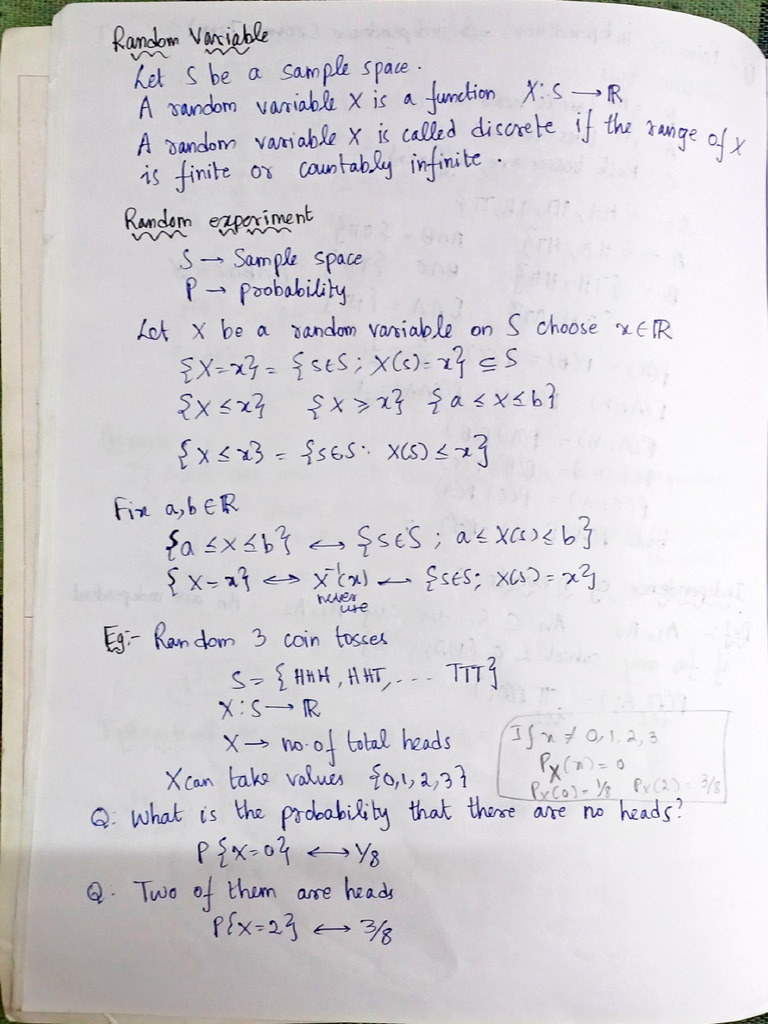 Random Variable
Let S be a sample space.
A random variable X is a function X: S → ℝ
A random variable X is called discrete if the range of X
is finite or countably infinite.
Random experiment
S → Sample space
P → probability
Let X be a random variable on S choose x ∈ ℝ
{X=x} = {s∈S ; X(s)=x} ⊆ S
{X ≤ x} {X ≥ x} {a ≤ X ≤ b}
{X ≤ x} = {s∈S : X(s) ≤ x}
Fix a,b ∈ ℝ
{a ≤ X ≤ b} ↔ {s∈S ; a ≤ X(s) ≤ b}
{X=x} ↔ X⁻¹(x) ← {s∈S; X(s) = x}
never
use
Eg:- Random 3 coin tosses
S = {HHH, HHT, .... TTT}
X: S → ℝ
X → no. of total heads
X can take values {0,1,2,3}
If x ≠ 0,1,2,3
Pₓ(x) = 0
Pₓ(0) = 1/8 Pₓ(2) = 3/8
Q: What is the probability that there are no heads?
P{X=0} ↔ 1/8
Q: Two of them are heads
P{X=2} ↔ 3/8